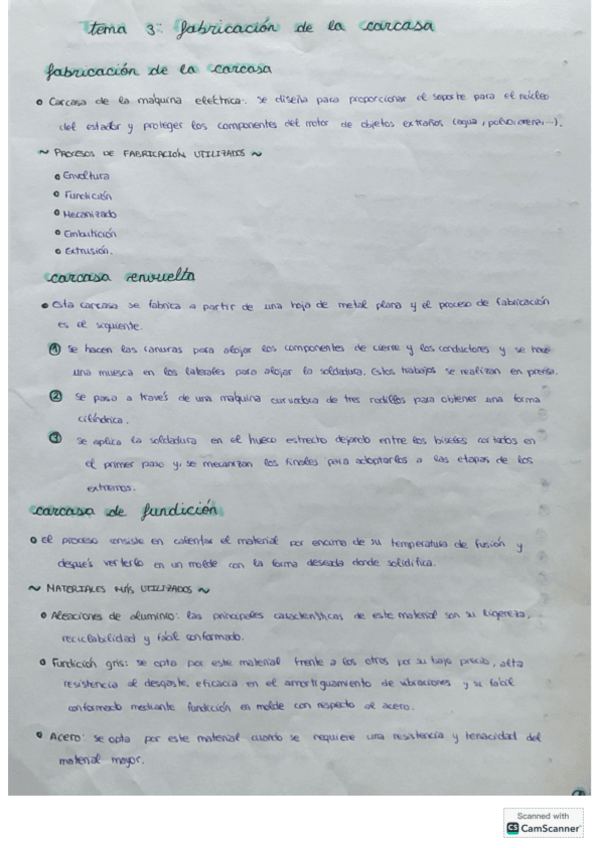 tema 3: fabricación de la carcasa
fabricación de la carcasa
Carcasa de la maquina electrica: se diseña para proporcionar el soporte para el núcleo
del estator y proteger los componentes del motor de objetos extraños (agua, polvo, arena, ...).
~ PROCESOS DE FABRICACIÓN UTILIZADOS ~
Envoltura
Fundición
Mecanizado
Embutición
Extrusión.
carcasa envuelta
Esta carcasa se fabrica a partir de una hoja de metal plana y el proceso de fabricación
es el siguiente.
① Se hacen las ranuras para alojar los componentes de cierre y los conductores y se hace
una muesca en los laterales para alojar la soldadura. Estos trabajos se realizan en prensa.
② Se pasa a través de una maquina curvadora de tres rodillos para obtener una forma
cilíndrica.
③ Se aplica la soldadura en el hueco estrecho dejando entre los biseles cortados en
el primer paso y se mecanizan los finales para adaptarlos a las etapas de los
extremos.
carcasa de fundición
El proceso consiste en calentar el material por encima de su temperatura de fusión y
después verterlo en un molde con la forma deseada donde solidifica.
~ MATERIALES MÁS UTILIZADOS ~
Aleaciones de aluminio: las principales características de este material son su ligereza,
reciclabilidad y fácil conformado.
Fundición gris: se opta por este material frente a los otros por su bajo precio, alta
resistencia al desgaste, eficacia en el amortiguamiento de vibraciones y su fácil
conformado mediante fundición en molde con respecto al acero.
Acero: se opta por este material cuando se requiere una resistencia y tenacidad del
material mayor.
Scanned with
CS CamScanner